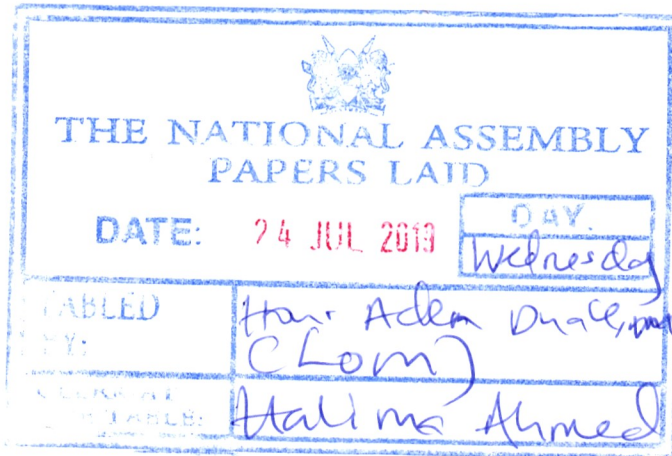 THE NATIONAL ASSEMBLY
PAPERS LAID
DATE: 24 JUL 2019
DAY.
Wednesday
TABLED BY:
Hon. Aden Duale,
(LOM)
CLERK AT THE TABLE:
Halima Ahmed